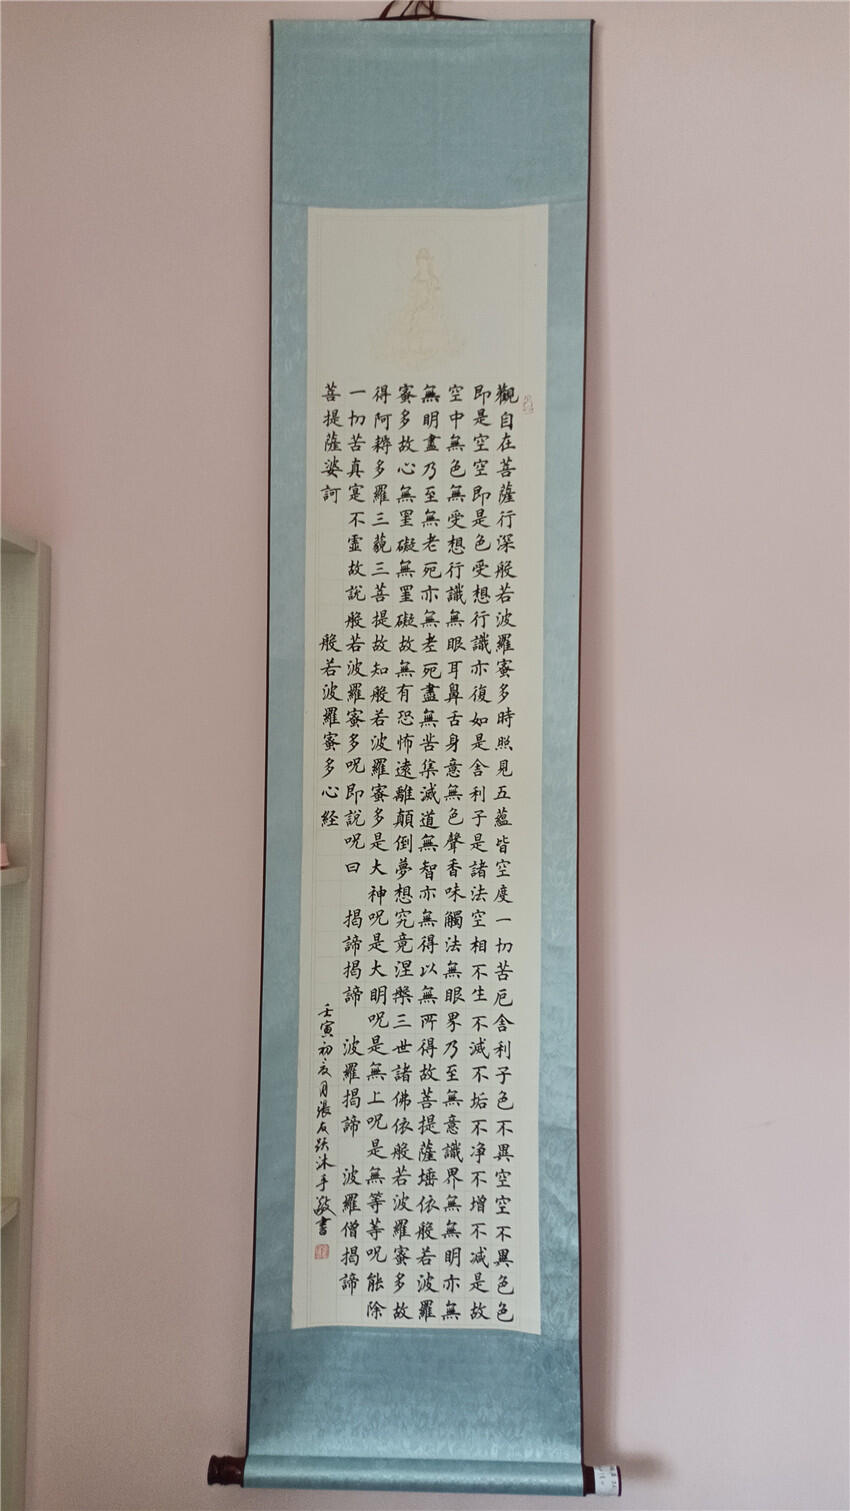 觀自在菩薩行深般若波羅蜜多時照見五蘊皆空度一切苦厄舍利子色不異空空不異色色
即是空空即是色受想行識亦復如是舍利子是諸法空相不生不滅不垢不净不增不减是故
空中無色無受想行識無眼耳鼻舌身意無色聲香味觸法無眼界乃至無意識界無無明亦無
無明盡乃至無老死亦無老死盡無苦集滅道無智亦無得以無所得故菩提薩埵依般若波羅
蜜多故心無罣礙無罣礙故無有恐怖遠離顛倒夢想究竟涅槃三世諸佛依般若波羅蜜多故
得阿耨多羅三藐三菩提故知般若波羅蜜多是大神呪是大明呪是無上呪是無等等呪能除
一切苦真寔不虛故說般若波羅蜜多呪即說呪曰 揭諦揭諦 波羅揭諦 波羅僧揭諦
菩提薩婆訶 般若波羅蜜多心経
壬寅初夏月張友跃沐手敬書